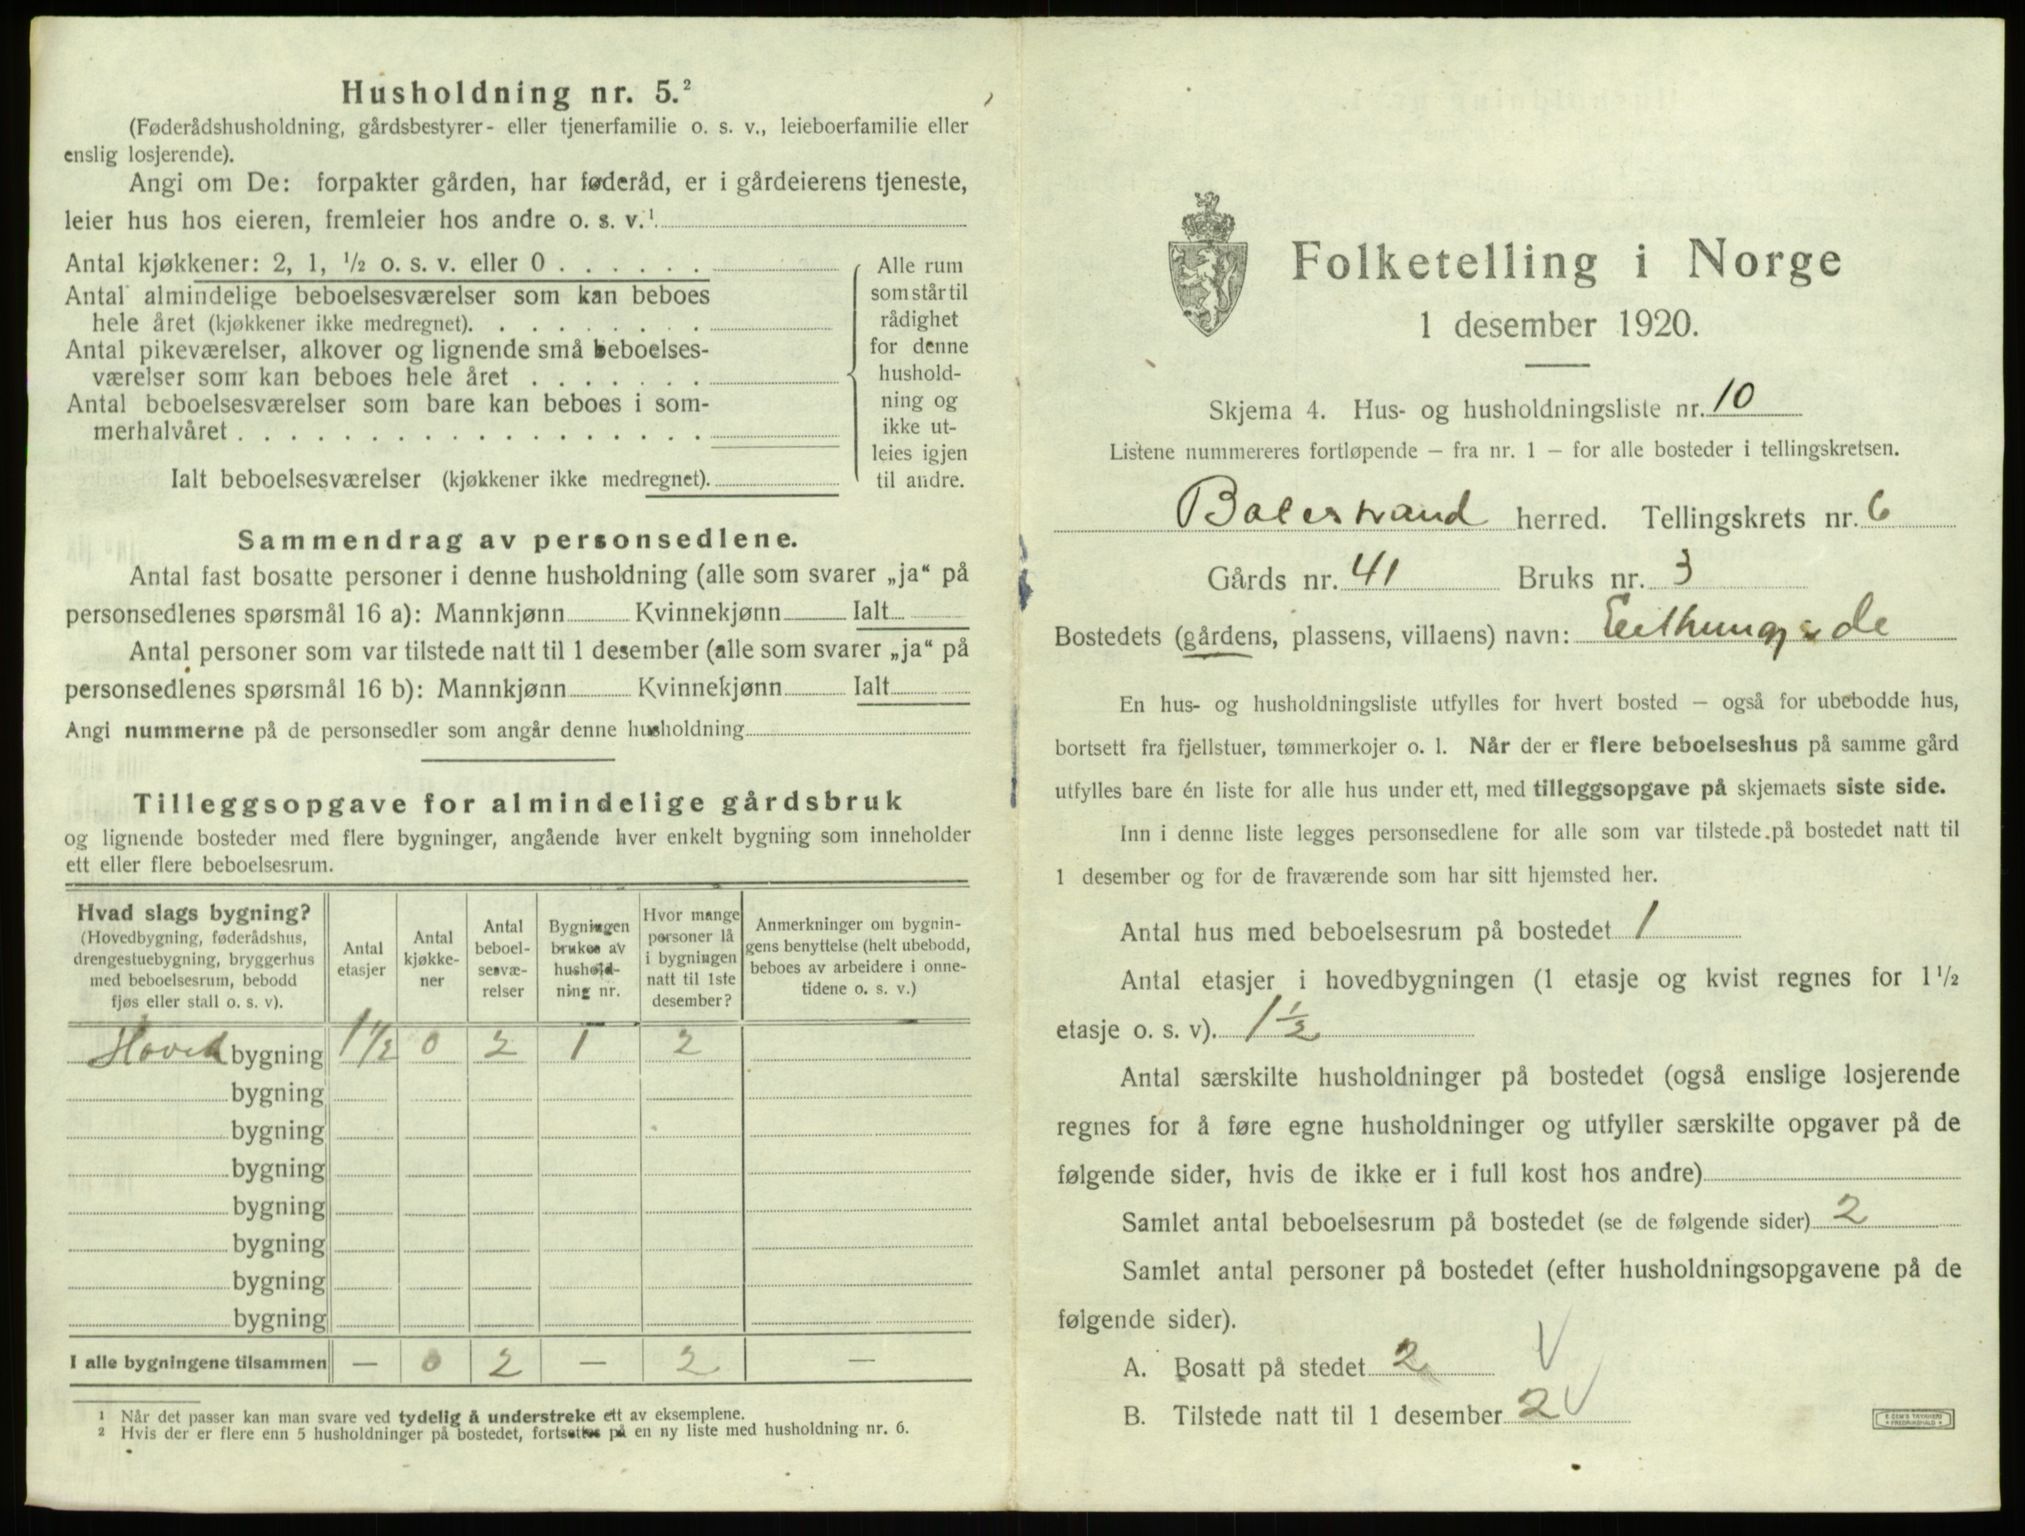 Husholdning nr. 5.²
(Føderådshusholdning, gårdsbestyrer- eller tjenerfamilie o. s. v., leieboerfamilie eller
enslig losjerende).
Angi om De: forpakter gården, har føderåd, er i gårdeierens tjeneste,
leier hus hos eieren, fremleier hos andre o. s. v.¹
Antal kjøkkener: 2, 1, ½ o. s. v. eller 0 . . . . . .
Antal almindelige beboelsesværelser som kan beboes
hele året (kjøkkener ikke medregnet). . . . . . . . .
Antal pikeværelser, alkover og lignende små beboelses-
værelser som kan beboes hele året . . . . . . .
Antal beboelsesværelser som bare kan beboes i som-
merhalvåret . . . . . . . . . . . . . . . . . .
Ialt beboelsesværelser (kjøkkener ikke medregnet).
Alle rum
som står til
rådighet
for denne
hushold-
ning og
ikke ut-
leies igjen
til andre.
Sammendrag av personsedlene.
Antal fast bosatte personer i denne husholdning (alle som svarer „ja“ på
personsedlenes spørsmål 16 a): Mannkjønn Kvinnekjønn Ialt
Antal personer som var tilstede natt til 1 desember (alle som svarer „ja“ på
personsedlenes spørsmål 16 b): Mannkjønn Kvinnekjønn Ialt
Angi nummerne på de personsedler som angår denne husholdning
Tilleggsopgave for almindelige gårdsbruk
og lignende bosteder med flere bygninger, angående hver enkelt bygning som inneholder
ett eller flere beboelsesrum.
Hvad slags bygning?
(Hovedbygning, føderådshus,
drengestuebygning, bryggerhus
med beboelsesrum, bebodd
fjøs eller stall o. s. v).
Antal
etasjer
Antal
kjøkke-
ner
Antal
beboel-
sesvæ-
relser
Bygningen
brukes av
hushold-
ning nr.
Hvor mange
personer lå
i bygningen
natt til 1ste
desember?
Anmerkninger om bygnin-
gens benyttelse (helt ubebodd,
beboes av arbeidere i onne-
tidene o. s. v.)
Hoved bygning 1 1/2 0 2 1 2
bygning
bygning
bygning
bygning
bygning
bygning
bygning
I alle bygningene tilsammen — 0 2 — 2 —
¹ Når det passer kan man svare ved tydelig å understreke ett av eksemplene.
² Hvis der er flere enn 5 husholdninger på bostedet, fortsettes på en ny liste med husholdning nr. 6.
Folketelling i Norge
1 desember 1920.
Skjema 4. Hus- og husholdningsliste nr. 10
Listene nummereres fortløpende — fra nr. 1 — for alle bosteder i tellingskretsen.
Balestrand herred. Tellingskrets nr. 6
Gårds nr. 41 Bruks nr. 3
Bostedets (gårdens, plassens, villaens) navn:
En hus- og husholdningsliste utfylles for hvert bosted — også for ubebodde hus,
bortsett fra fjellstuer, tømmerkojer o. l. Når der er flere beboelseshus på samme gård
utfylles bare én liste for alle hus under ett, med tilleggsopgave på skjemaets siste side.
Inn i denne liste legges personsedlene for alle som var tilstede på bostedet natt til
1 desember og for de fraværende som har sitt hjemsted her.
Antal hus med beboelsesrum på bostedet 1
Antal etasjer i hovedbygningen (1 etasje og kvist regnes for 1 ½
etasje o. s. v). 1 ½
Antal særskilte husholdninger på bostedet (også enslige losjerende
regnes for å føre egne husholdninger og utfyller særskilte opgaver på de
følgende sider, hvis de ikke er i full kost hos andre)
Samlet antal beboelsesrum på bostedet (se de følgende sider) 2
Samlet antal personer på bostedet (efter husholdningsopgavene på de
følgende sider).
A. Bosatt på stedet 2 V
B. Tilstede natt til 1 desember 2 V